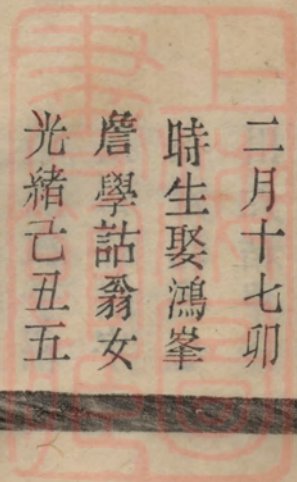 二月十七卯
時生娶鴻峯
詹學詁翁女
光緒己丑五